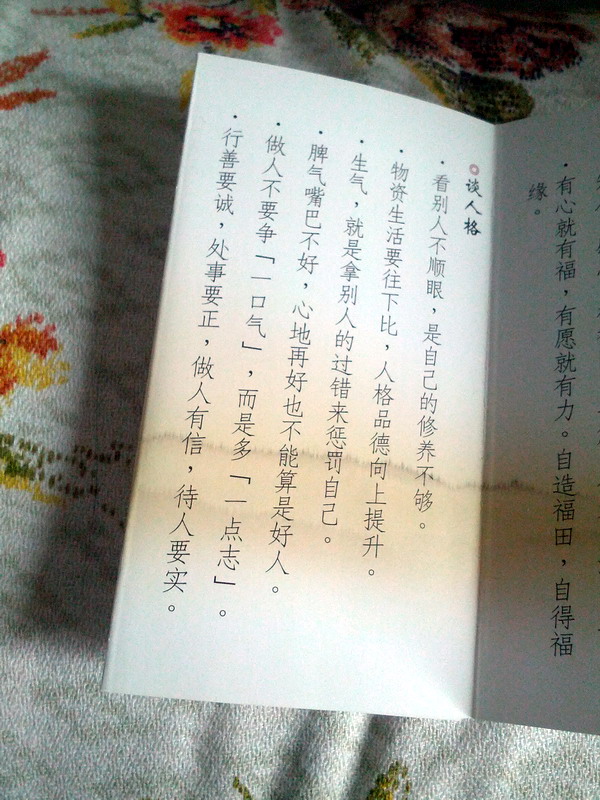 ・有心就有福，有愿就有力。自造福田，自得福
缘。
谈人格
・看别人不顺眼，是自己的修养不够。
・物资生活要往下比，人格品德向上提升。
・生气，就是拿别人的过错来惩罚自己。
・脾气嘴巴不好，心地再好也不能算是好人。
・做人不要争「一口气」，而是多「一点志」。
・行善要诚，处事要正，做人有信，待人要实。